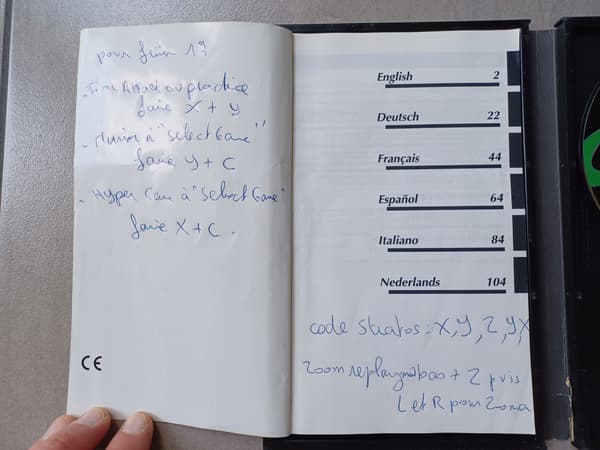 pour finir 1er
- Time Attack ou practice
faire X + Y
- Mirroir à "Select Game"
faire Y + C
- Hyper Car à "Select Game"
faire X + C.
CE
English 2
Deutsch 22
Français 44
Español 64
Italiano 84
Nederlands 104
code Stratos : X, Y, Z, Y, X
Zoom replay bas + Z puis
L et R pour Zoom